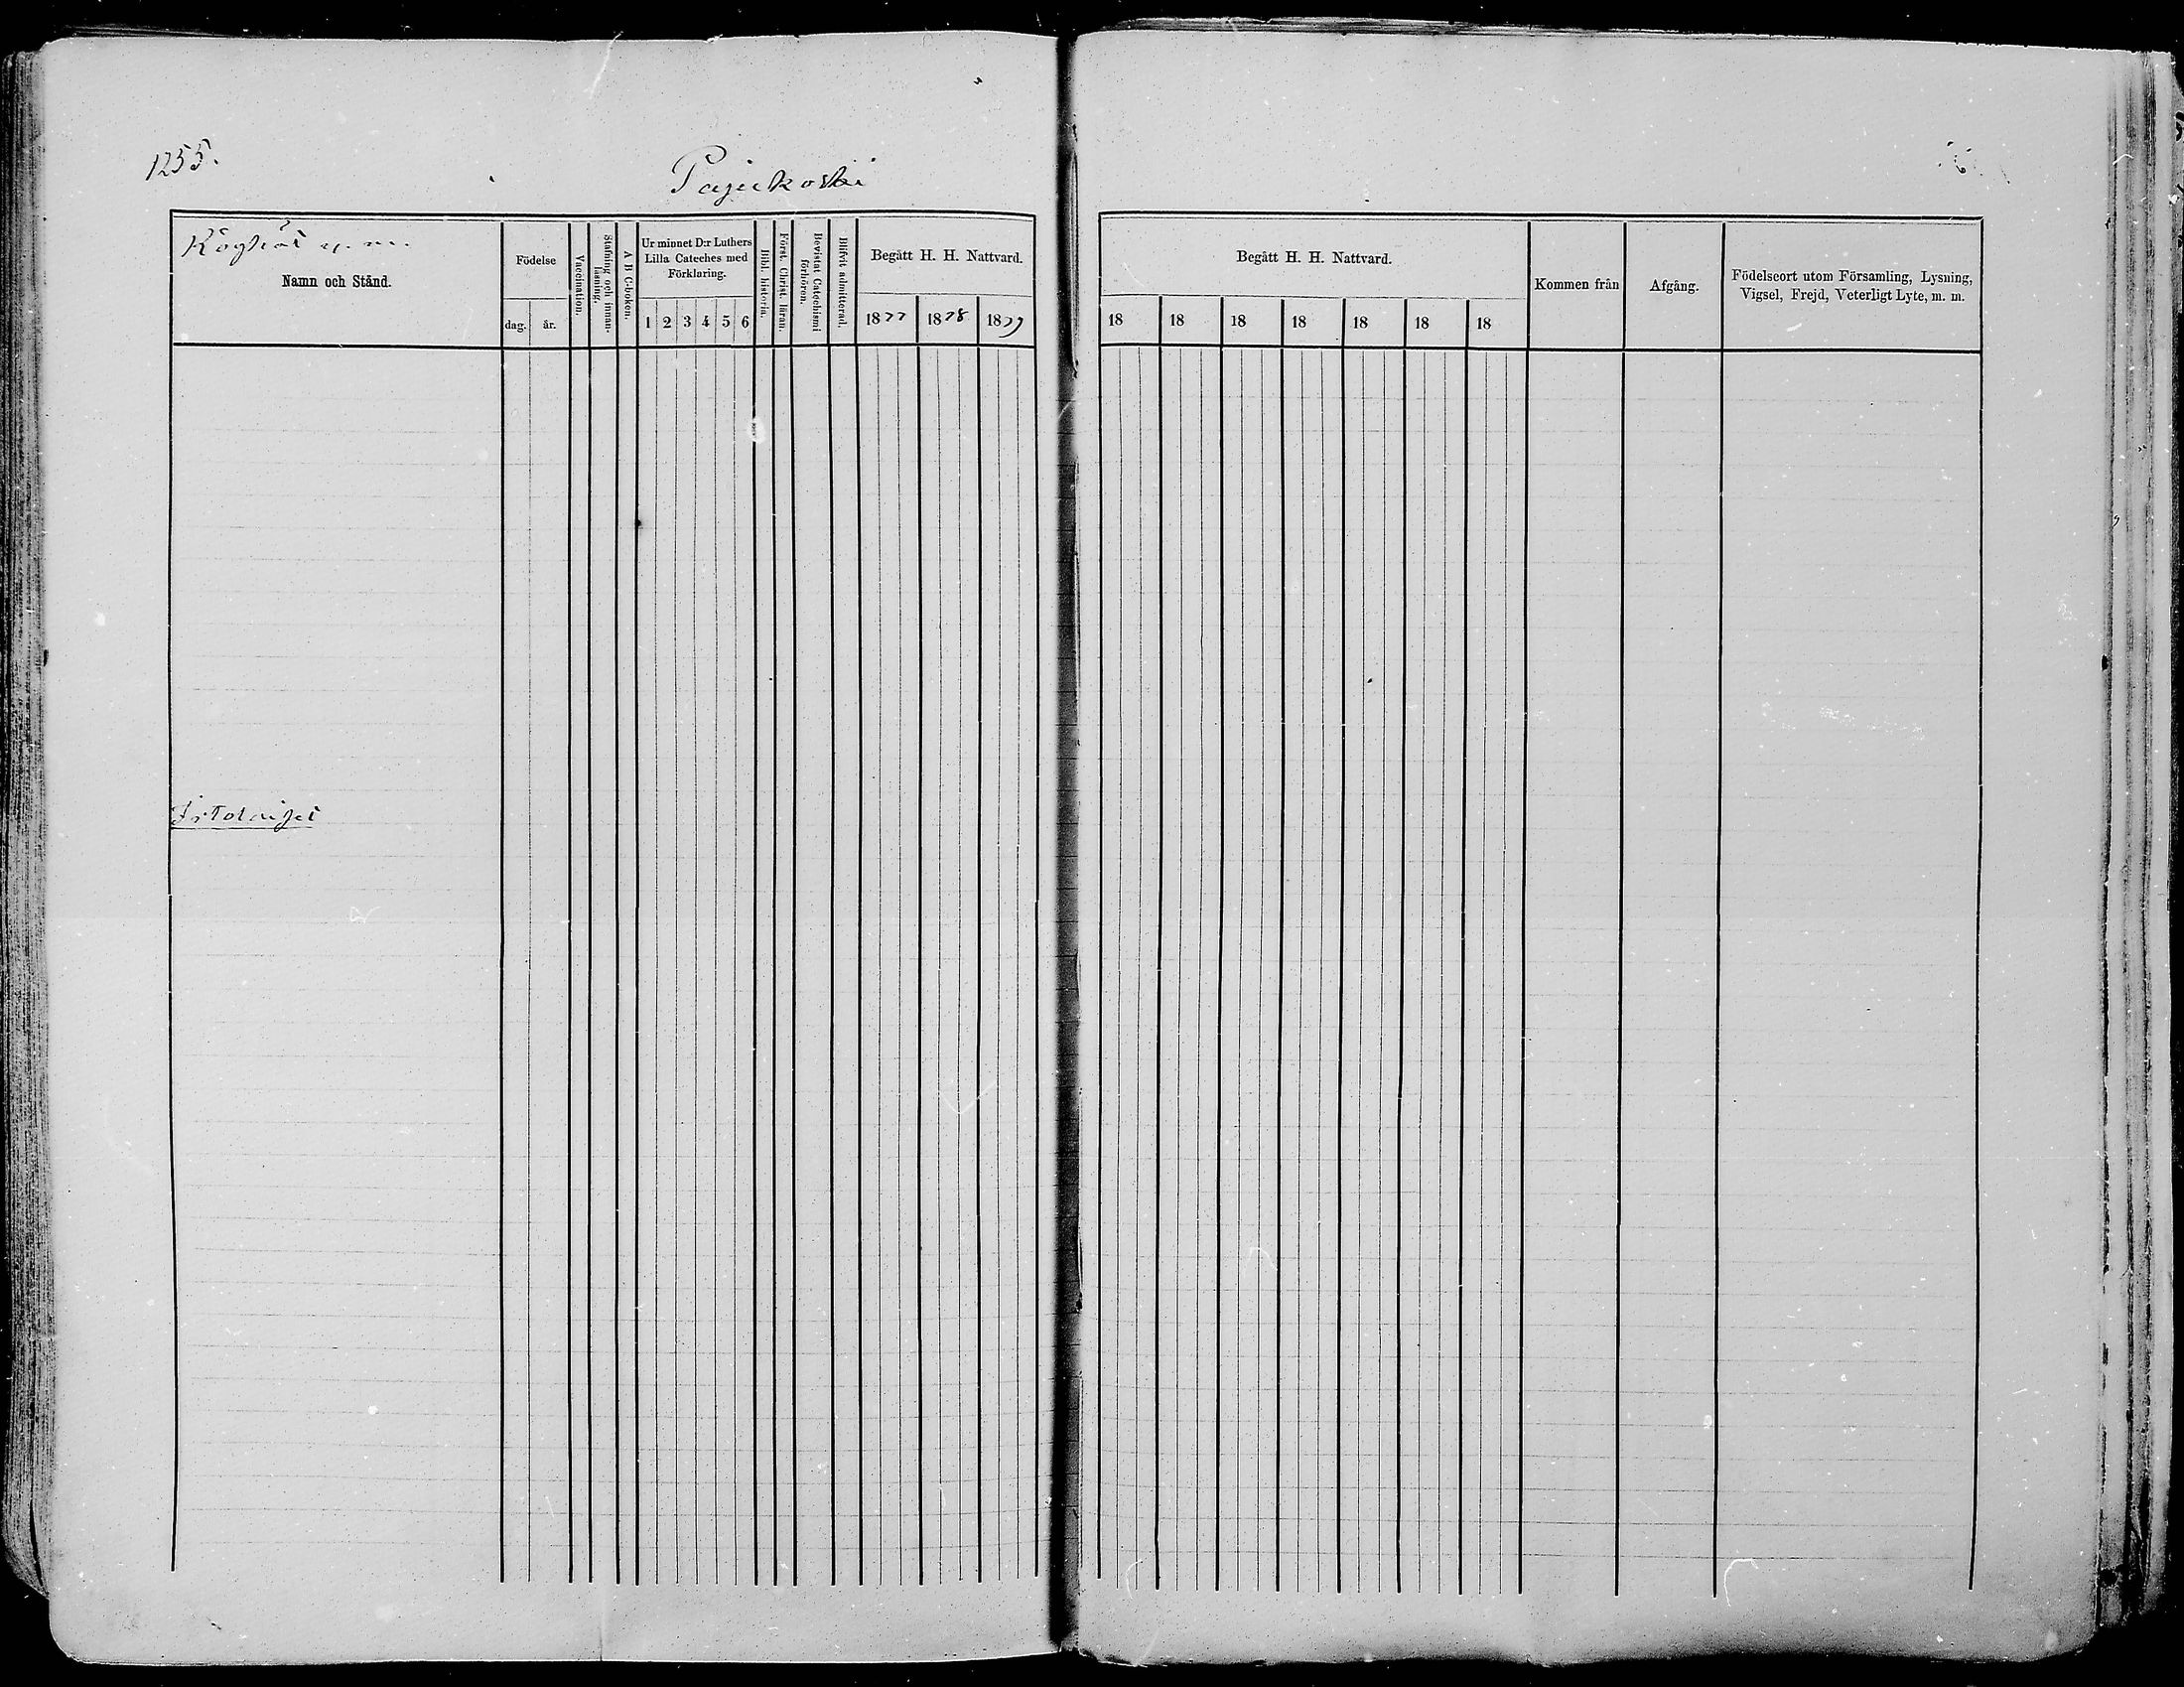 1255.
Pajukoski
Köyhät y. m.
Namn och Stånd.
Födelse
dag. år.
Vaccination.
Stafning och innan-
läsning.
A B C-boken.
Ur minnet D:r Luthers
Lilla Cateches med
Förklaring.
1 2 3 4 5 6
Bibl. historia.
Först. Christ. läran.
Bevistat Catechismi
förhören.
Blifvit admitterad.
Begått H. H. Nattvard.
1877 1878 1879
Irtolaiset
Begått H. H. Nattvard.
18 18 18 18 18 18 18
Kommen från
Afgång.
Födelseort utom Församling, Lysning,
Vigsel, Frejd, Veterligt Lyte, m. m.